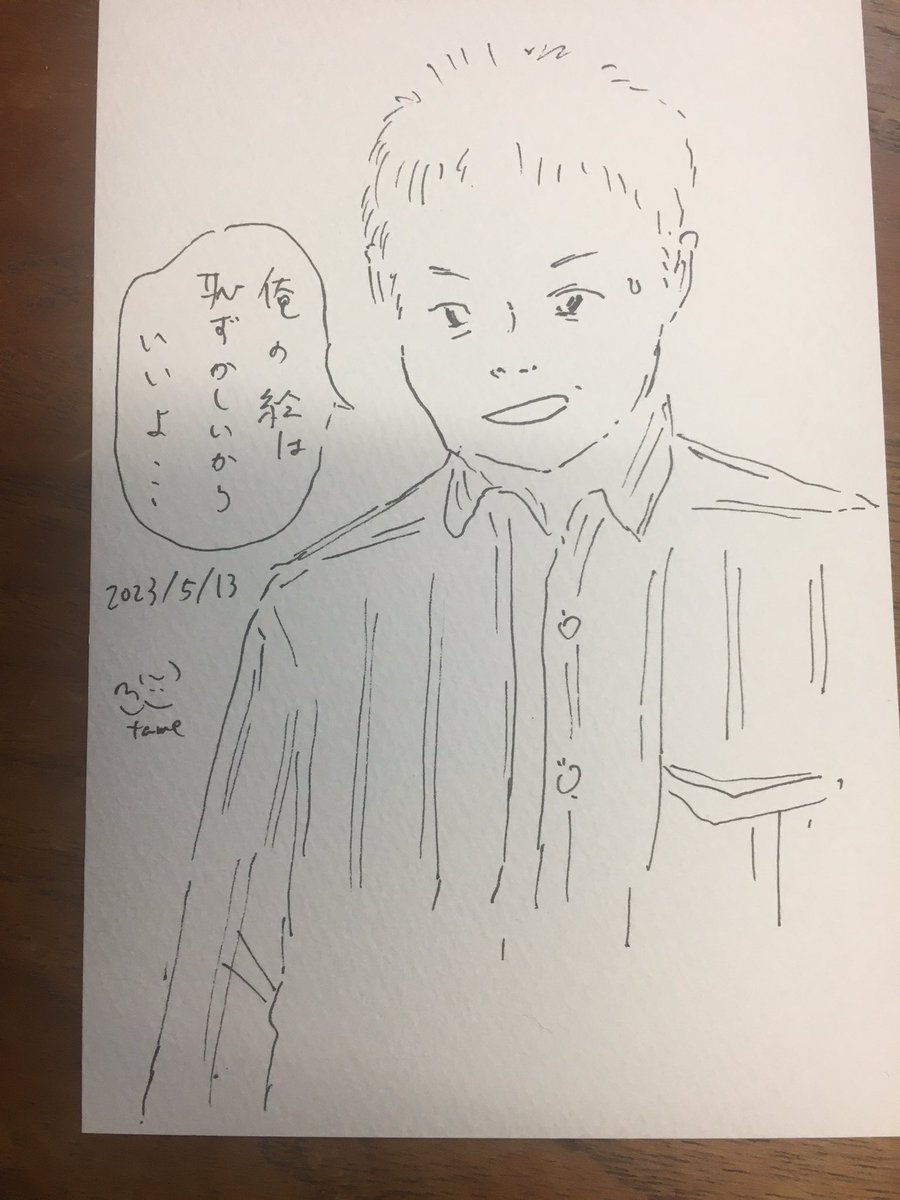 俺の絵は
恥ずかしいから
いいよ...
2023/5/13
tame